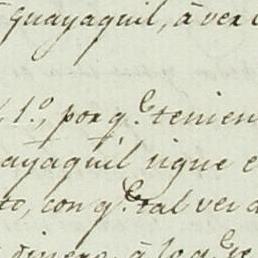 Guayaquil, á ver
1.º, por q.e tenien
ayaquil sigue e
to, con q.e tal vez
dinero, á lo q.e